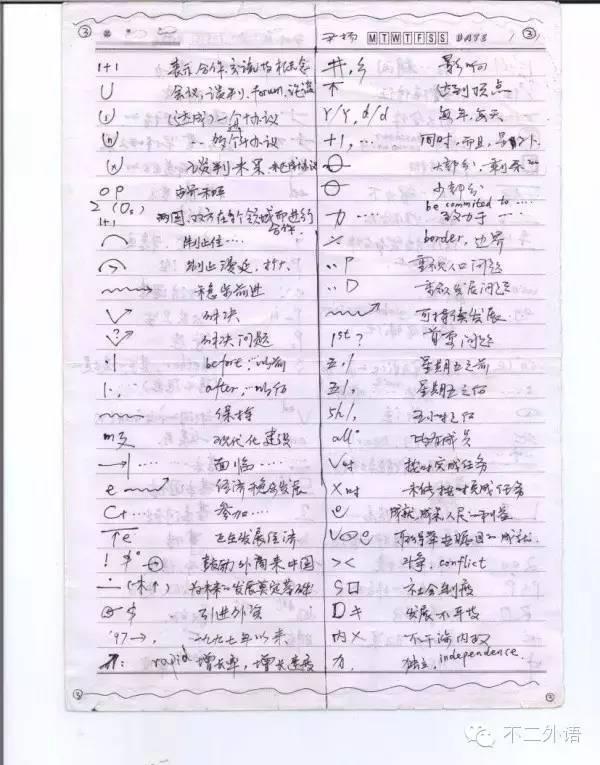 ③ ②
M T W T F S S DATE
1+1 表示合作,交流的概念
U 会议,谈判,forum,论谈
(达成)一个协议
n个协议
谈判未果
O P 世界和平
2 (Os) 1+1 两国,双方在各个领域都进行合作.
制止住····
制止漫延,扩大.
稳步前进
解决
解决问题
·| before,··以前
|·, after,··以后
保持
现代化建设
→| ···· 面临·····
e 经济稳步发展
C+··· 参加····
e 正在发展经济
! $ 鼓励外商来中国
(未↑) 为未来的发展奠定基础
$ 引进外资
'97→, 一九九七年以来
rapid 增长率,增长速度
井,乡 影响
不 达到顶点
Y/Y, d/d 每年,每天
+1, ·· 同时,而且
大部分
少部分
力··· be commited to ···· 致力于 ····
border, 边界
··P 重视人口问题
··D 重视发展问题
可持续发展
1st? 首要问题
五·/ 星期五之前
五/· 星期五之后
5h/· 五小时之后
all° 所有成员
V时 按时完成任务
X时 未能按时完成任务
e 成就,成果,人民的利益
>< 斗争, conflict
S口 社会制度
D キ 发展不平衡
内X 不干涉内政
力. 独立, independence.
③ ②
不二外语